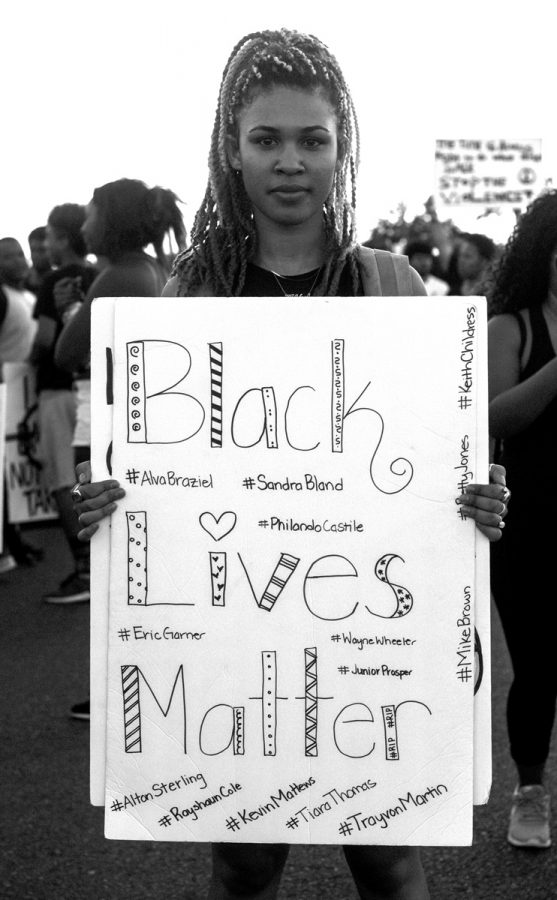 Black
#AlvaBraziel #SandraBland
#PhilandoCastile
Lives
#EricGarner #WayneWheeler
#JuniorProsper
Matter
#RIP #RIP
#AltonSterling
#RayshaunCole
#KevinMathews
#TiaraThomas
#TrayvonMartin
#KeithChildress
#BettyJones
#MikeBrown
STOP THE
VIOLENCE!
NOT
TAK